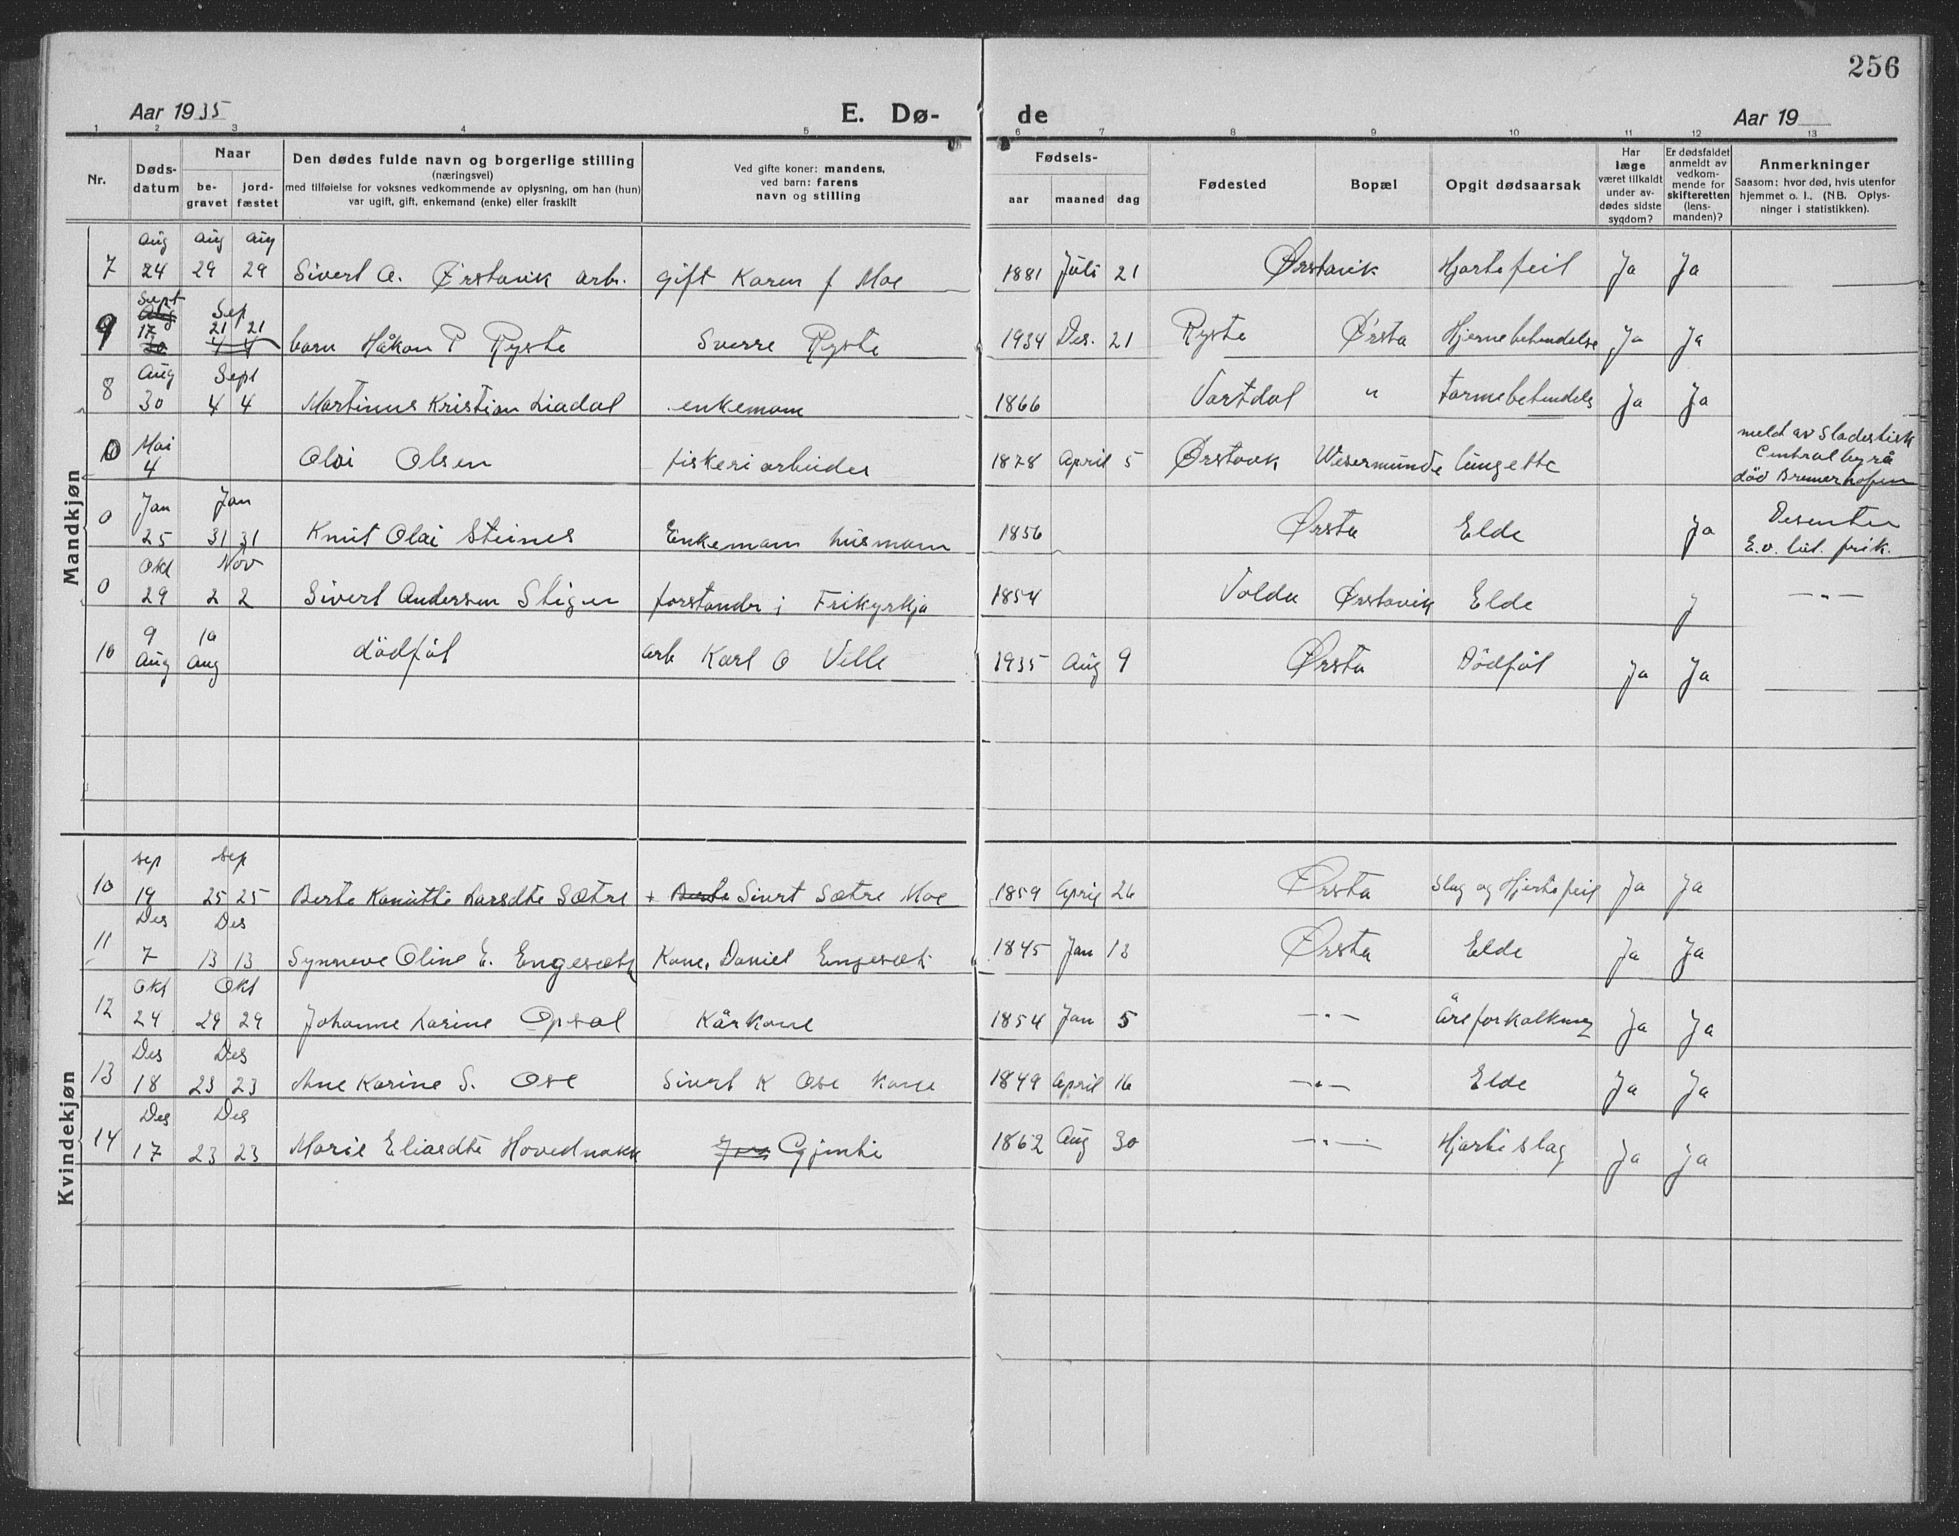 256
Aar 1935 E. Dø- de Aar 19
1 2 3 4 5 6 7 8 9 10 11 12 13
Nr.
Døds-
datum
Naar
be-
gravet
jord-
fæstet
Den dødes fulde navn og borgerlige stilling
(næringsvei)
med tilføielse for voksnes vedkommende av oplysning, om han (hun)
var ugift, gift, enkemand (enke) eller fraskilt
Ved gifte koner: mandens,
ved barn: farens
navn og stilling
Fødsels-
aar maaned dag
Fødested
Bopæl
Opgit dødsaarsak
Har
læge
været tilkaldt
under av-
dødes sidste
sygdom?
Er dødsfaldet
anmeldt av
vedkom-
mende for
skifteretten
(lens-
manden)?
Anmerkninger
Saasom: hvor død, hvis utenfor
hjemmet o. l.. (NB. Oplys-
ninger i statistikken).
Mandkjøn
Aug Aug Aug
7 24 29 29 Sivert A. Ørstavik arb. gift Karen f Moe 1881 Juli 21 Ørstavik Hjertefeil Ja Ja
Sept Aug Sep
9 17 20 21 21 4 4 barn Håkon P Ryste Sverre Ryste 1934 Des. 21 Ryste Ørsta Hjernebetendelse Ja Ja
Aug Sept
8 30 4 4 Martinus Kristian Liadal enkemann 1866 Vartdal " Tarmebetendels Ja Ja
Mai
0 4 Olai Olsen fiskeriarbeider 1878 April 5 Ørstavik Wesermünde lungette meld av Stadestisk
Centralbyrå
död Bremerhafen
Jan Jan
0 25 31 31 Knut Olai Steines Enkemann husmann 1856 Ørsta Elde Ja Desenter
E.v. lut. frik.
Okt Nov
0 29 2 2 Sivert Andersen Stigen forstander i Frikyrkja 1854 Volda Ørstavik Elde J —"—
9 10
10 Aug Aug dödföt arb Karl O Velle 1935 Aug 9 Ørsta Dödföt Ja Ja
Kvindekjøn
Sep Sep
10 19 25 25 Berte Larsdte Sætre + Berte Sivert Sætre Moe 1859 April 26 Ørsta Slag og Hjertefeil Ja Ja
Des Des
11 7 13 13 Synneve Oline E. Engesæth Kone, Daniel Engesæt 1845 Jan 13 Ørsta Elde Ja Ja
Okt Okt
12 24 29 29 Johanne Karine Opsal Kårkone 1854 Jan 5 —"— Åreforkalkning Ja Ja
Des Des
13 18 23 23 Ane Karine S. Ose Sivert K Ose kone 1849 April 16 —"— Elde Ja Ja
Des Des
14 17 23 23 Marie Eliasdte Hovednakk Gjenti 1862 Aug 30 —"— Hjerteslag Ja Ja